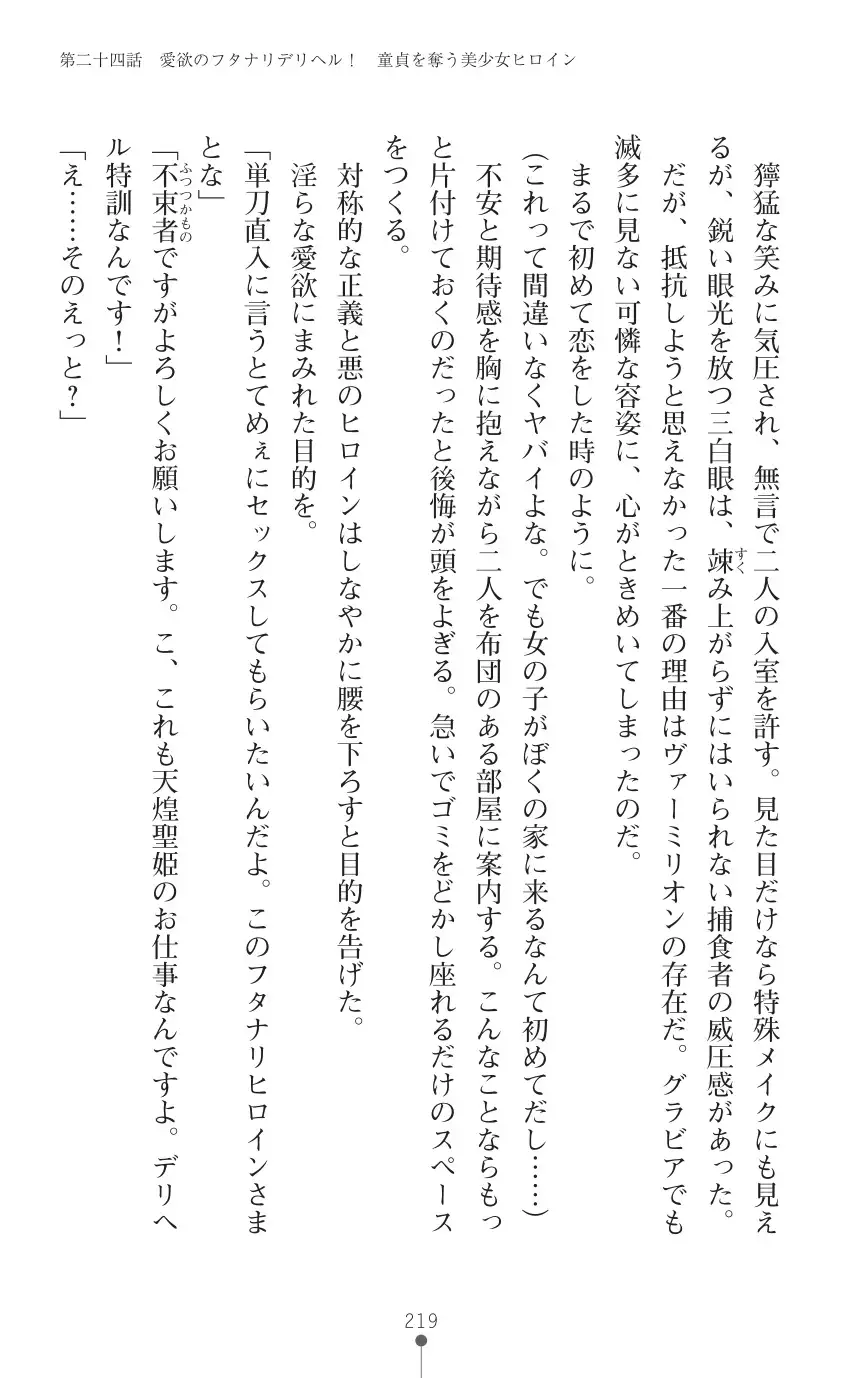 第二十四話　愛欲のフタナリデリヘル！　童貞を奪う美少女ヒロイン
獰猛な笑みに気圧され、無言で二人の入室を許す。見た目だけなら特殊メイクにも見え
るが、鋭い眼光を放つ三白眼は、竦み上がらずにはいられない捕食者の威圧感があった。
だが、抵抗しようと思えなかった一番の理由はヴァーミリオンの存在だ。グラビアでも
滅多に見ない可憐な容姿に、心がときめいてしまったのだ。
まるで初めて恋をした時のように。
（これって間違いなくヤバイよな。でも女の子がぼくの家に来るなんて初めてだし……）
不安と期待感を胸に抱えながら二人を布団のある部屋に案内する。こんなことならもっ
と片付けておくのだったと後悔が頭をよぎる。急いでゴミをどかし座れるだけのスペース
をつくる。
対称的な正義と悪のヒロインはしなやかに腰を下ろすと目的を告げた。
淫らな愛欲にまみれた目的を。
「単刀直入に言うとてめぇにセックスしてもらいたいんだよ。このフタナリヒロインさま
とな」
「不束者ですがよろしくお願いします。こ、これも天煌聖姫のお仕事なんですよ。デリヘ
ル特訓なんです！」
「え……そのえっと？」
219